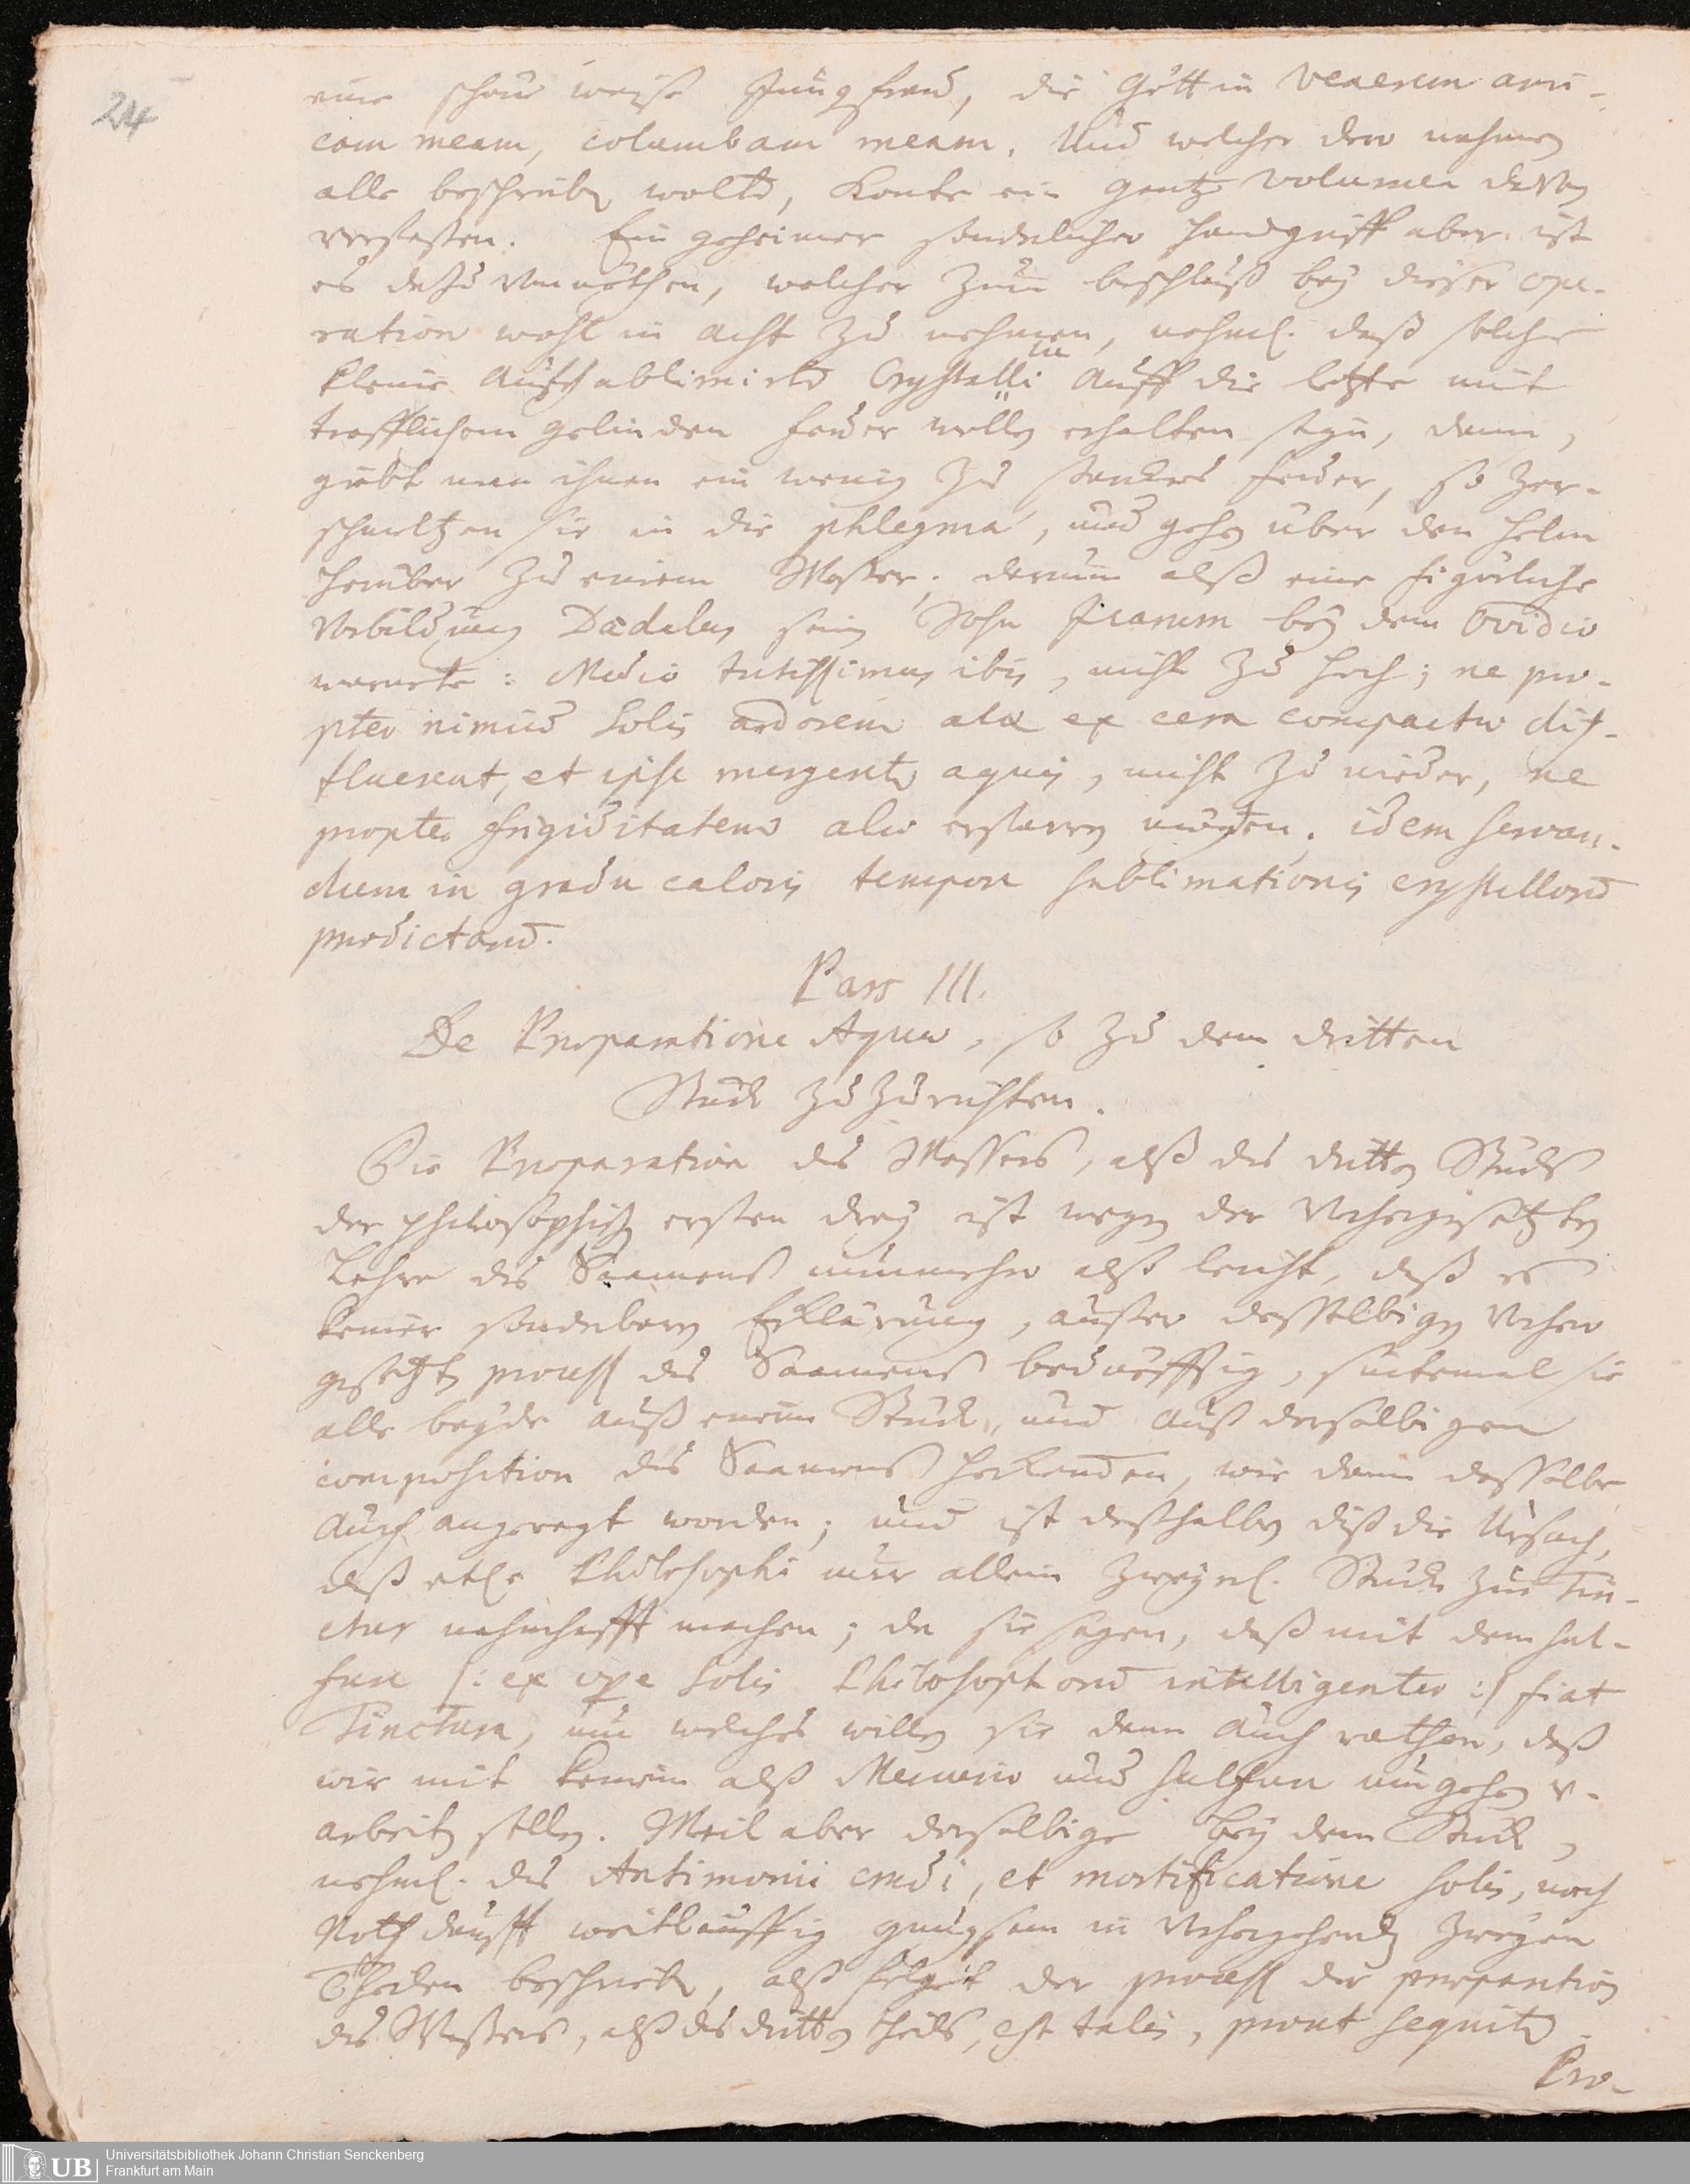 24
eine schöne weiße Jungfraw, die Göttin Venerem ami-
cam meam, columbam meam. Und welcher der nahmen
alle beschreiben wolte, könte ein gantz volumen davon
verfaßen. Ein geheimer sonderlicher Handgriff aber ist
es dazu vonnöthen, welcher zum beschluß bey dieser ope-
ration wohl in acht zu nehmen, nehml. daß solche
kleine auffsublimirte Crystalli auff die letzte mit
trefflichem gelinden fewer wollen erhalten seyn, denn,
giebt man ihnen ein wenig zu starckes fewer, so zer-
schmeltzen sie in die phlegma, und gehen über den helm
herüber zu einem Waßer, darumb alß eine figürliche
Vorbildung Dædalus sein Sohn Icarum bey dem Ovidio
warnete: Medio tutissimus ibis, nicht zu hoch; ne pro-
pter nimiu Solis ardorem alæ ex cera compactæ dif-
fluerent, et ipse mergeretur aquis, nicht zu nieder, ne
propter frigiditatem alæ erstarren mögten. idem servan-
dum in gradu caloris tempore sublimationis crystalloru
prædictaru.
Pars III.
De Præparatione Aquæ, so zu dem dritten
Stück zuzurichten.
Die Præparation des Waßers, alß des dritten Stücks
der philosophischen ersten drey ist wegen der Vorhergesetzten
Lehre des Saamens nunmehr alß leicht, daß es
keiner sonderbaren Erklärung, außer desselbigen Vorher
gesetzten process des Saamens bedürfftig, sintemal sie
alle beyde auß einem Stück, und auß derselbigen
composition des Saamens herkommen, wie dann desselbe
auch angeregt worden; und ist deßhalben diß die Ursach,
daß etl. Philosophi nur allein zweyerl. Stück zur Tin-
ctur nahmhafft machen; da sie sagen, daß mit dem sul-
fure /: ex ope Solis Philosophoru intelligentes :/ fiat
Tinctura, um welches willen sie dann auch rathen, daß
wir mit keinem alß Mercurio und sulfure umgehen v.
arbeiten sollen. Weil aber derselbige bey dem Stück,
nehml. des Antimonii crudi, et mortificatione solis, nach
Nothdurfft weitläuffig gnugsam in Vorhergehenden zweyen
Theilen beschrieben, alß folget der process der præparation
des Waßers, alß des dritten theils, est talis, prout sequitur.
Pro-
Universitätsbibliothek Johann Christian Senckenberg
Frankfurt am Main
UB